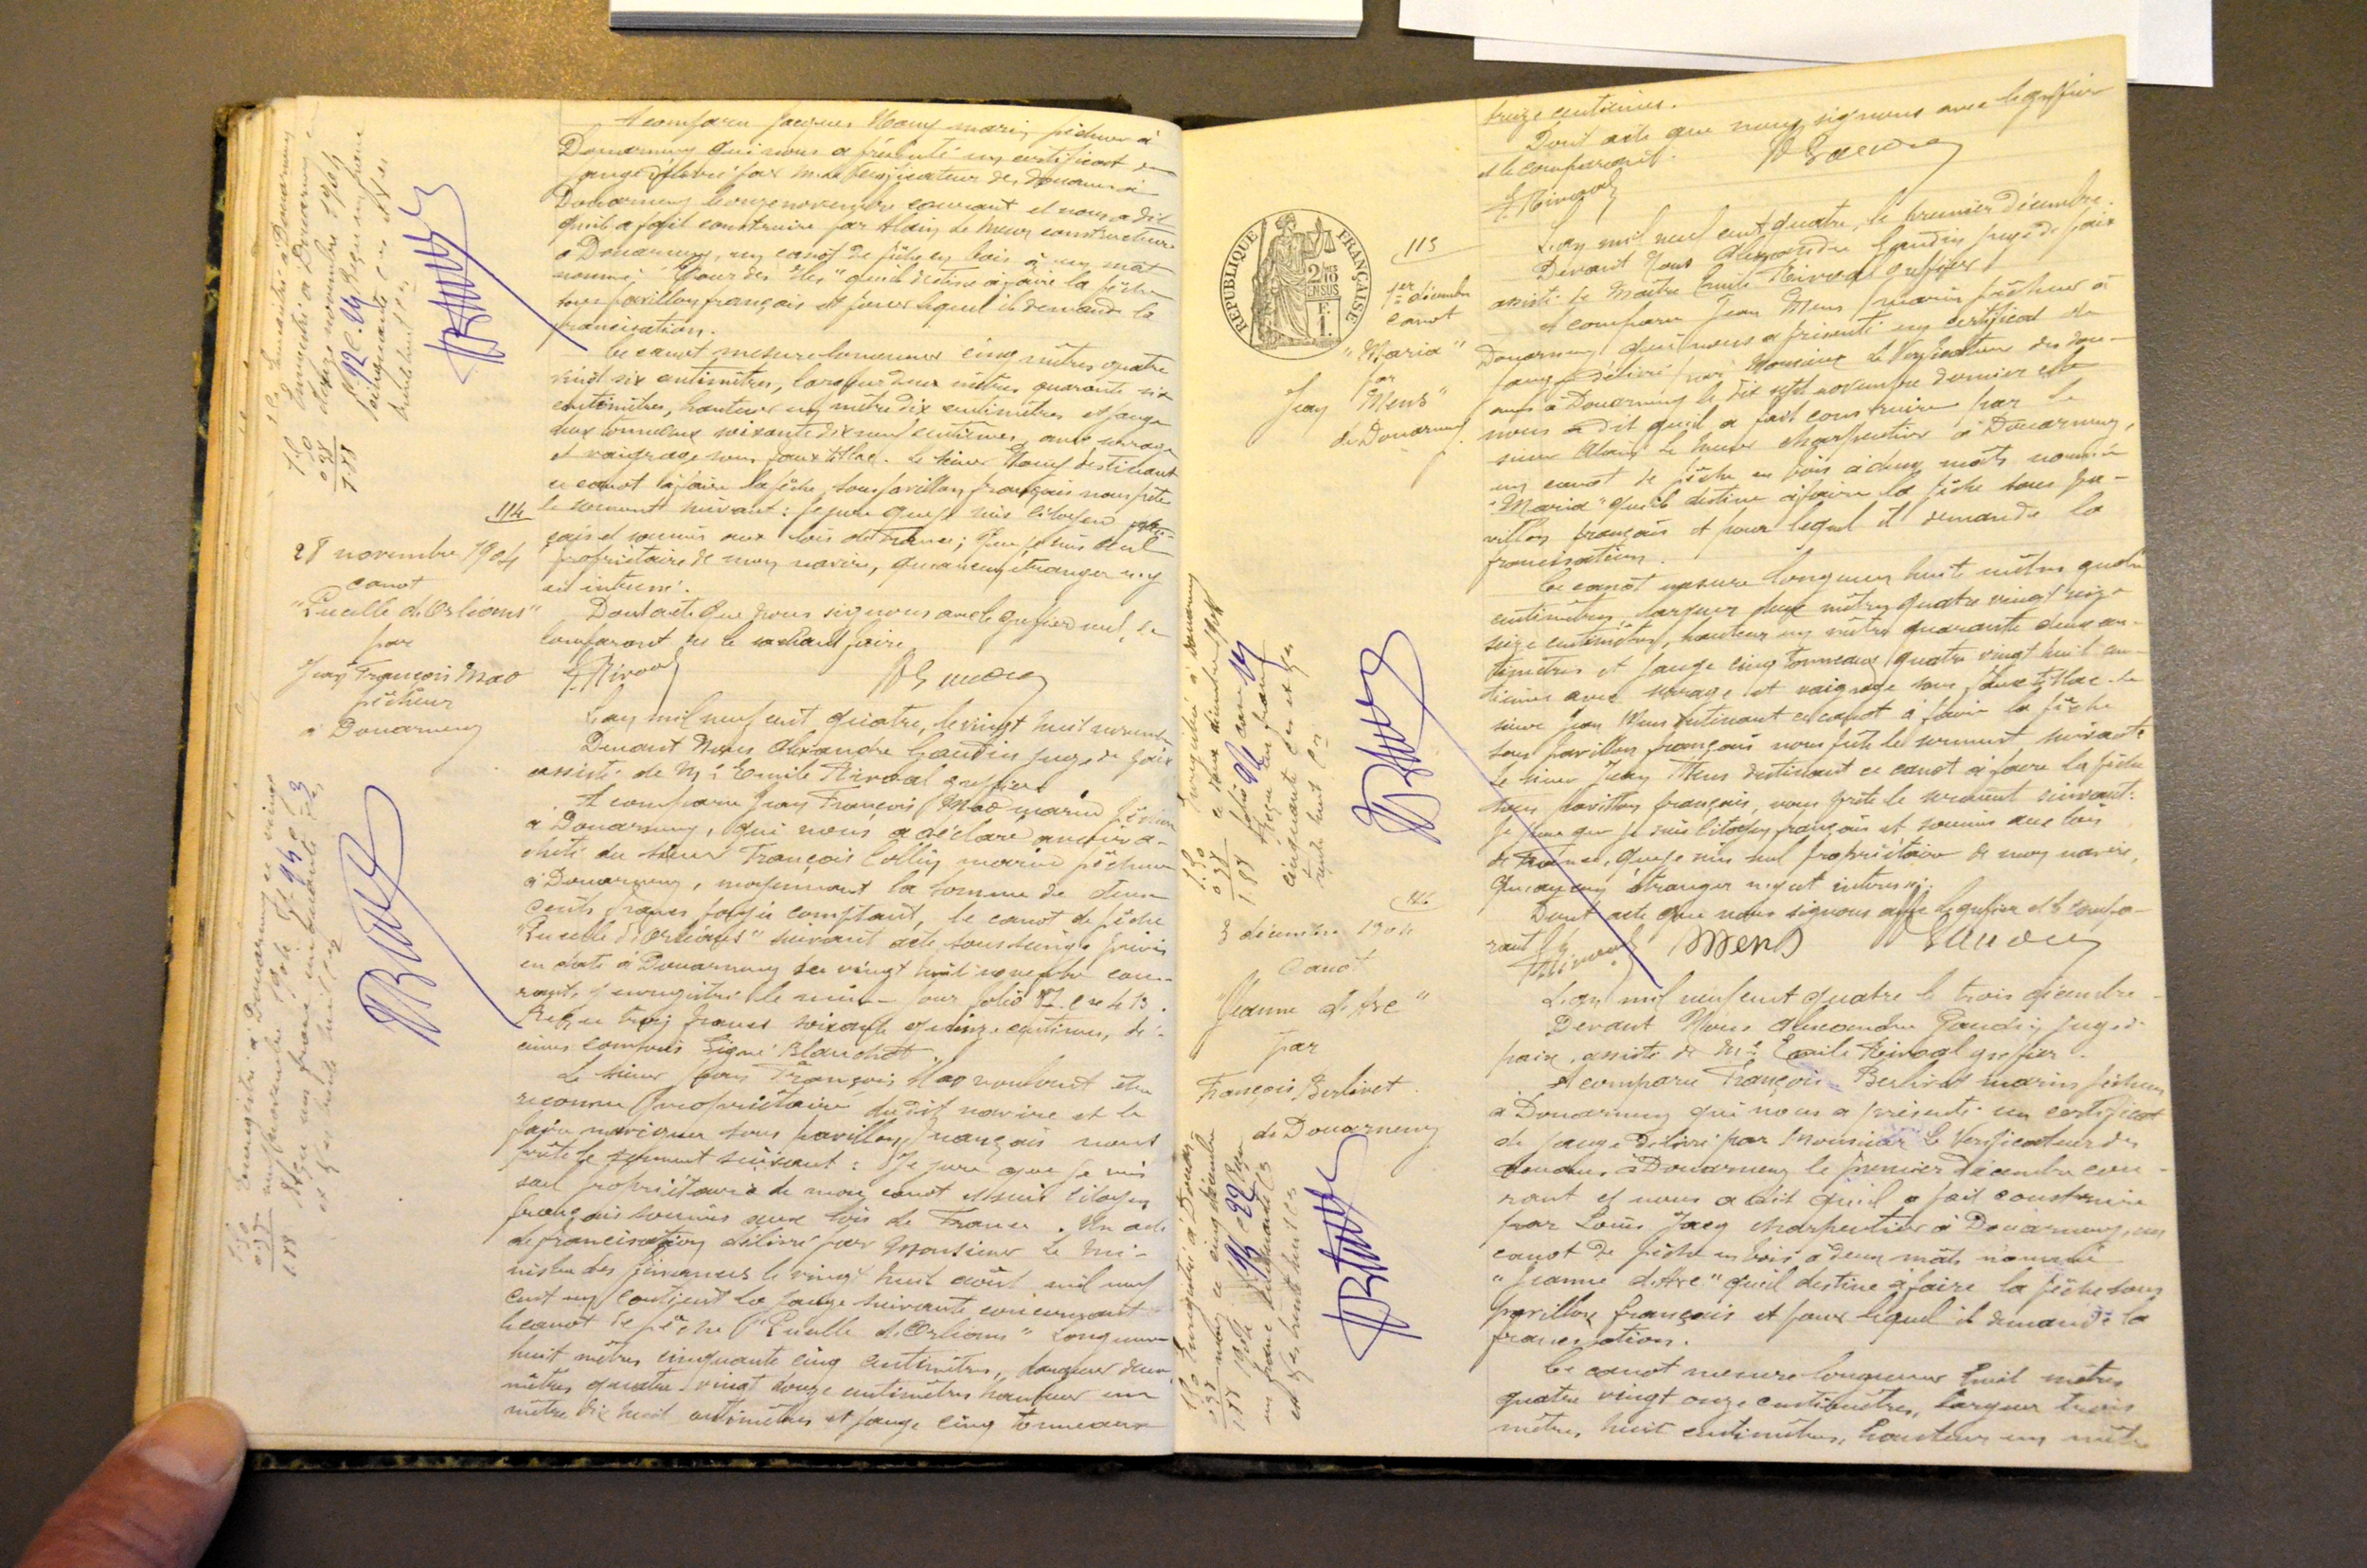 A comparu Jacques marin pêcheur à
Douarnenez qui nous a présenté un certificat de
jauge délivré par M. le Vérificateur des douanes à
Douarnenez le onze novembre courant et nous a dit
qu'il a fait construire par Alain Le Meur constructeur
à Douarnenez, un canot de pêche en bois à un mât
nommé qu'il destine à faire la pêche
sous pavillon français et pour lequel il demande la
francisation.
Ce canot mesure longueur cinq mètres quatre
vingt six centimètres, largeur deux mètres quarante six
centimètres, hauteur un mètre dix centimètres et jauge
deux tonneaux soixante dix neuf centièmes, avec
et vaigrage sous faux tillac. Le sieur destinant
ce canot à faire la pêche sous pavillon français nous prête
le serment suivant : Je jure que je suis citoyen
çais et soumis aux lois de France ; que je suis seul
propriétaire de mon navire, qu'aucun étranger n'y
est intéressé.
Dont acte que nous signons avec le greffier seul, le
comparant ne le sachant faire
114
28 novembre 1904
canot
"Pucelle d'Orléans"
par
Jean François Mao
pêcheur
à Douarnenez
L'an mil neuf cent quatre, le vingt huit novembre
Devant Nous Alexandre Gaudin juge de paix
assisté de Me Emile Rivoal greffier
A comparu Jean François Mao marin pêcheur
à Douarnenez, qui nous a déclaré avoir a-
cheté du sieur François Collin marin pêcheur
à Douarnenez, moyennant la somme de deux
cents francs payés comptant, le canot de pêche
"Pucelle d'Orléans" suivant acte sous seings privés
en date à Douarnenez du vingt huit novembre cou-
rant, enregistré le même jour folio 87 case 13.
Reçu trois francs soixante quinze centimes, dé-
cimes compris Signé Blanchot
Le sieur Jean François Mao voulant être
reconnu propriétaire dudit navire et le
faire naviguer sous pavillon français nous
prête le serment suivant : Je jure que je suis
seul propriétaire de mon canot et suis citoyen
français soumis aux lois de France. Un acte
de francisation délivré par Monsieur le Mi-
nistre des finances le vingt huit août mil neuf
cent un contient la jauge suivante concernant
le canot de pêche "Pucelle d'Orléans" longueur
huit mètres cinquante cinq centimètres, largeur deux
mètres quatre vingt douze centimètres hauteur un
mètre dix huit centimètres et jauge cinq tonneaux
treize centièmes.
Dont acte que nous signons avec le greffier
et le comparant.
REPUBLIQUE FRANÇAISE
115
1er décembre
canot
"Maria"
par
Jean Mens
de Douarnenez
L'an mil neuf cent quatre, le premier décembre.
Devant Nous Alexandre Gaudin juge de paix
assisté de Maître Emile Rivoal greffier
A comparu Jean Mens marin pêcheur à
Douarnenez qui nous a présenté un certificat de
jauge délivré par Monsieur le Vérificateur des dou-
anes à Douarnenez le dix sept novembre dernier et
nous a dit qu'il a fait construire par le
sieur Alain Le Meur charpentier à Douarnenez,
un canot de pêche en bois à deux mâts nommé
"Maria" qu'il destine à faire la pêche sous pa-
villon français et pour lequel il demande la
francisation.
Ce canot mesure longueur huit mètres quatre
centimètres, largeur deux mètres quatre vingt
seize centimètres, hauteur un mètre quarante deux cen-
timètres et jauge cinq tonneaux quatre vingt huit cen-
tièmes avec et vaigrage sous faux tillac. Le
sieur Jean Mens destinant ce canot à faire la pêche
sous pavillon français nous prête le serment suivant
Le sieur Jean Mens destinant ce canot à faire la pêche
sous pavillon français, nous prête le serment suivant :
Je jure que je suis citoyen français et soumis aux lois
de France, que je suis seul propriétaire de mon navire,
qu'aucun étranger n'y est intéressé.
Dont acte que nous signons avec le greffier et le compa-
rant
Mens
116
3 décembre 1904
Canot
"Jeanne d'Arc"
par
François Berlivet
de Douarnenez
L'an mil neuf cent quatre le trois décembre
Devant Nous Alexandre Gaudin juge de
paix, assisté de Me Emile Rivoal greffier.
A comparu François Berlivet marin pêcheur
à Douarnenez qui nous a présenté un certificat
de jauge délivré par Monsieur le Vérificateur des
douanes à Douarnenez le premier décembre cou-
rant et nous a dit qu'il a fait construire
par Louis Jacq charpentier à Douarnenez, un
canot de pêche en bois à deux mâts nommé
"Jeanne d'Arc" qu'il destine à faire la pêche sous
pavillon français et pour lequel il demande la
francisation.
Ce canot mesure longueur huit mètres
quatre vingt onze centimètres, largeur trois
mètres huit centimètres, hauteur un mètre